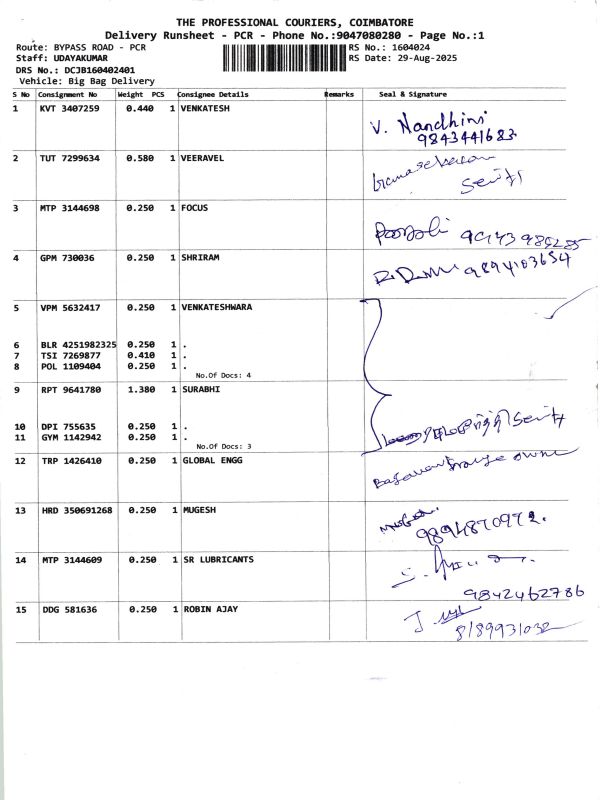 THE PROFESSIONAL COURIERS, COIMBATORE
Delivery Runsheet - PCR - Phone No.:9047080280 - Page No.:1
Route: BYPASS ROAD - PCR RS No.: 1604024
Staff: UDAYAKUMAR RS Date: 29-Aug-2025
DRS No.: DCJB160402401
Vehicle: Big Bag Delivery
S No Consignment No Weight PCS Consignee Details Remarks Seal & Signature
1 KVT 3407259 0.440 1 VENKATESH
V. Nandhini
9843441683
2 TUT 7299634 0.580 1 VEERAVEL
3 MTP 3144698 0.250 1 FOCUS
4 GPM 730036 0.250 1 SHRIRAM
9894103654
5 VPM 5632417 0.250 1 VENKATESHWARA
6 BLR 4251982325 0.250 1 .
7 TSI 7269877 0.410 1 .
8 POL 1109404 0.250 1 .
No.Of Docs: 4
9 RPT 9641780 1.380 1 SURABHI
10 DPI 755635 0.250 1 .
11 GYM 1142942 0.250 1 .
No.Of Docs: 3
12 TRP 1426410 0.250 1 GLOBAL ENGG
13 HRD 350691268 0.250 1 MUGESH
9894870972.
14 MTP 3144609 0.250 1 SR LUBRICANTS
9842462786
15 DDG 581636 0.250 1 ROBIN AJAY
8189931032